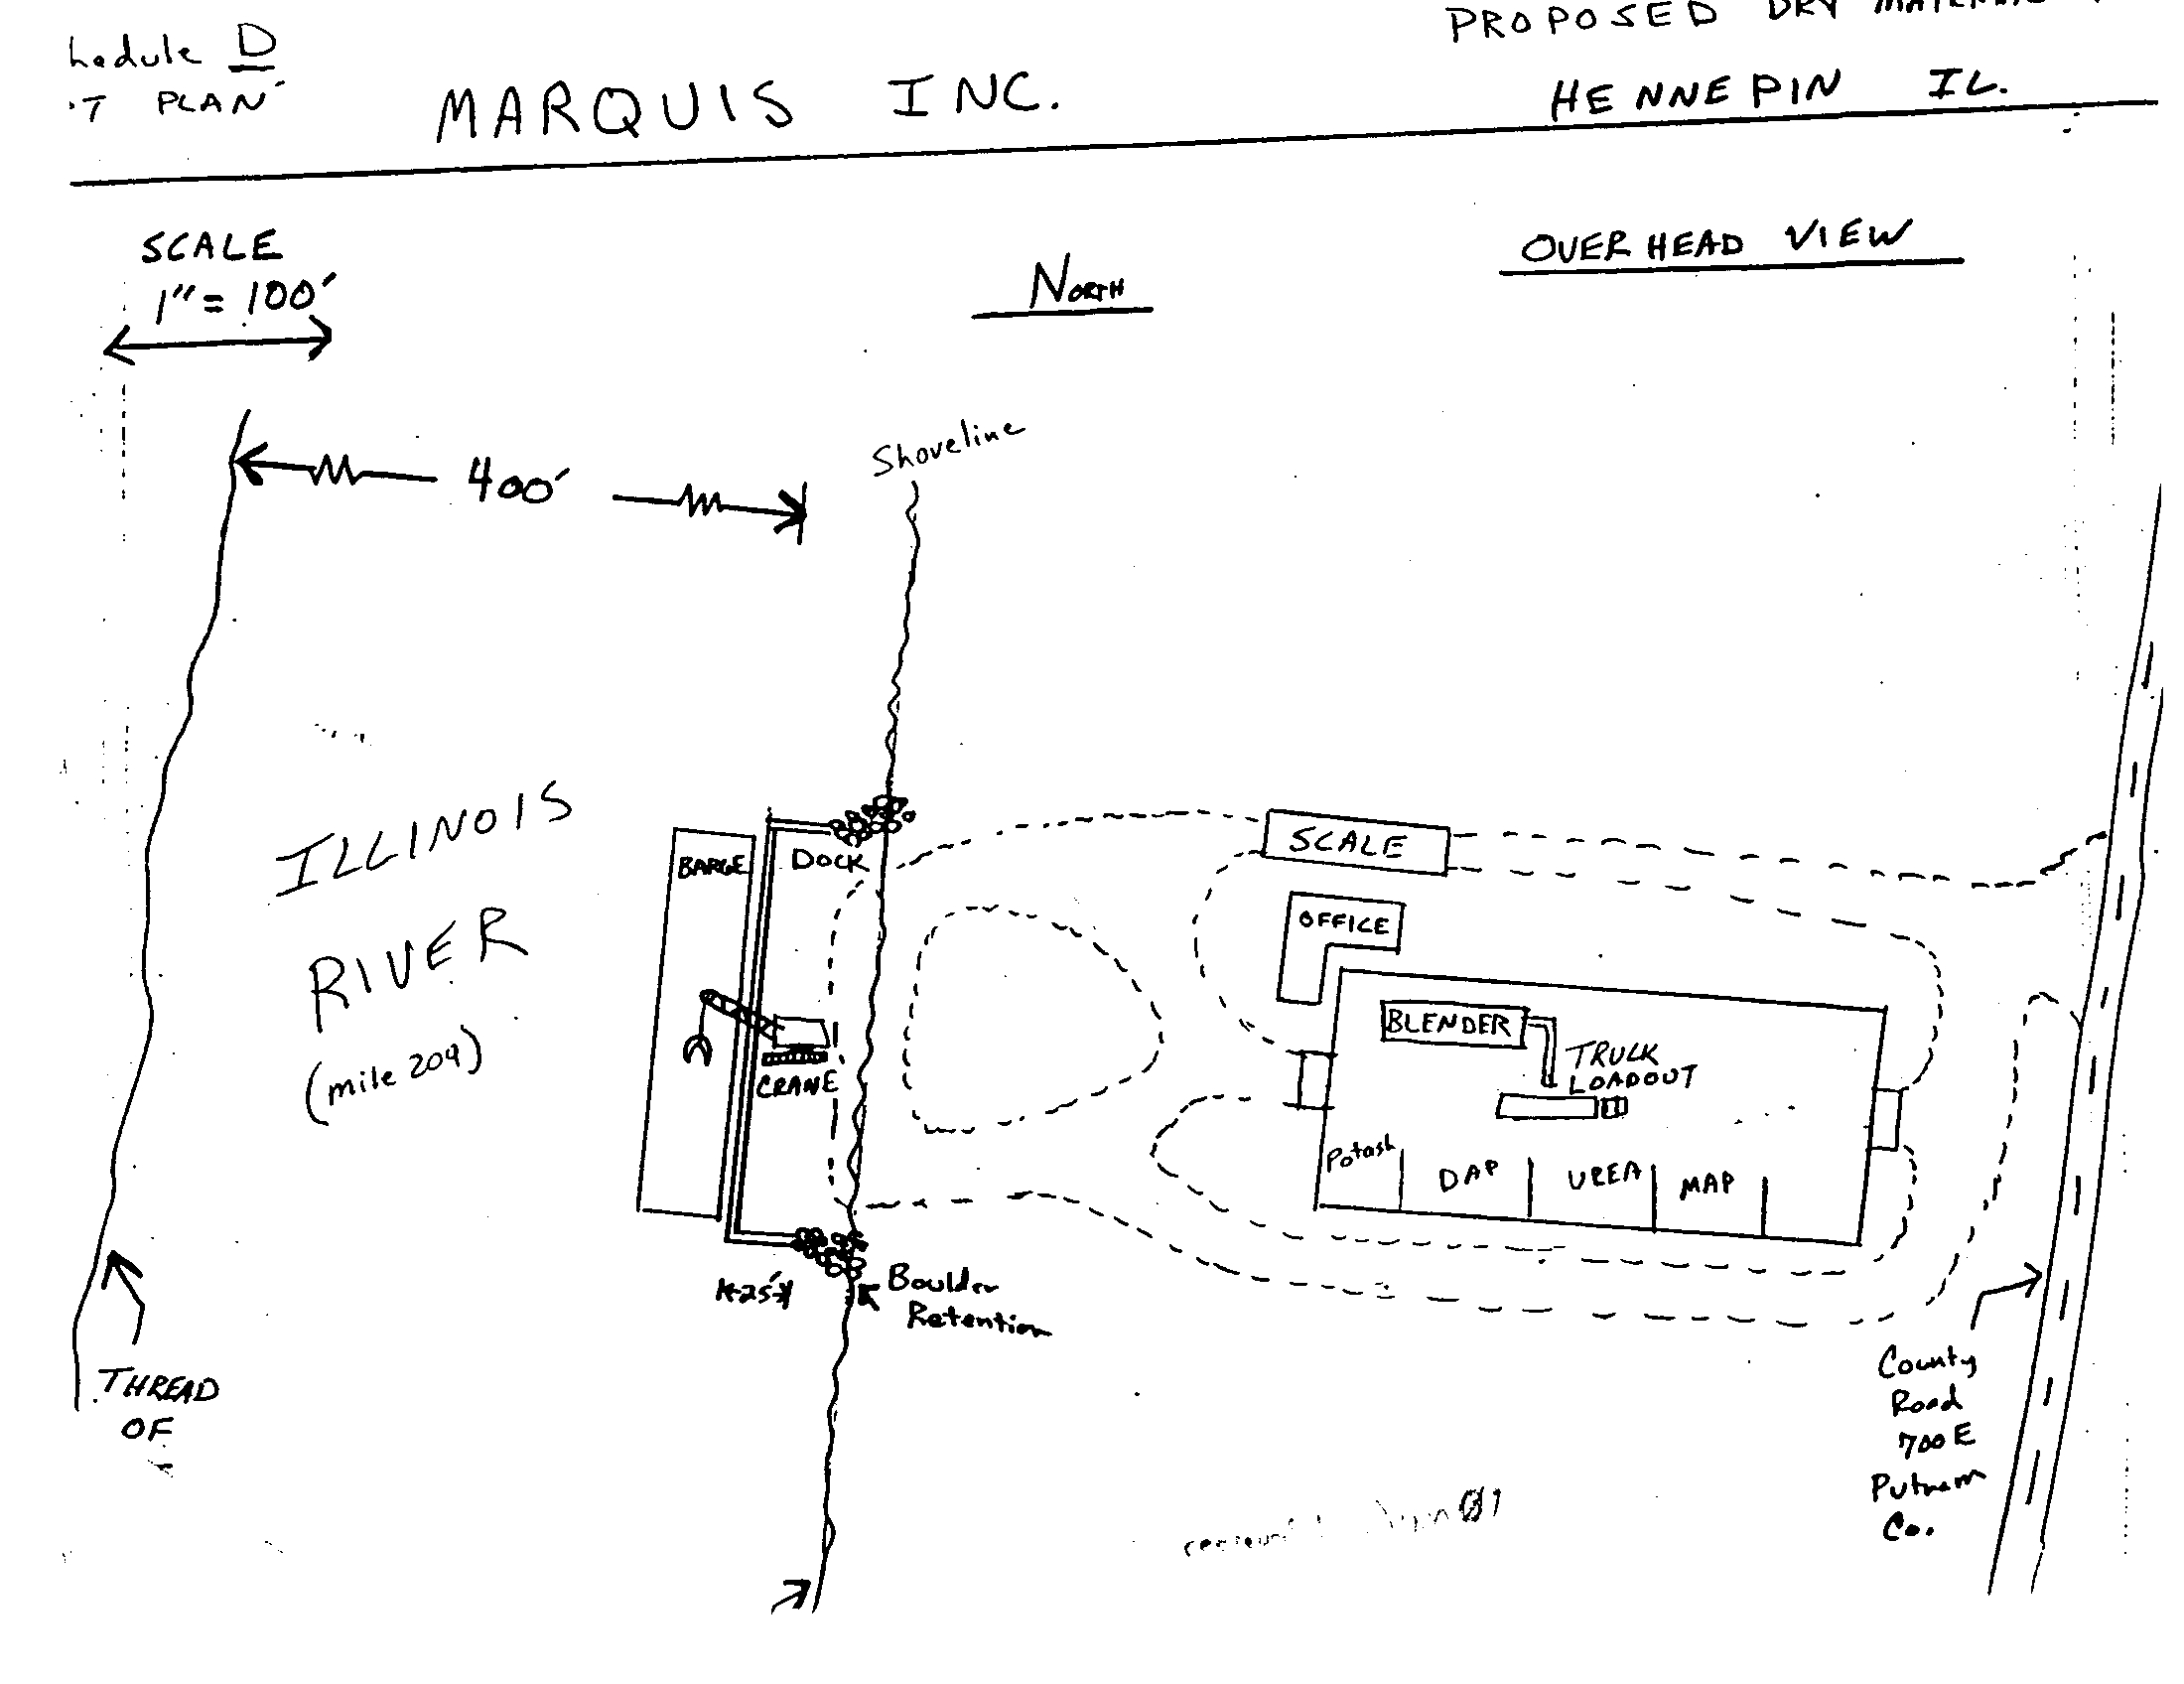 hedule D
'T PLAN
MARQUIS INC.
PROPOSED DRY MATERIAL
HENNEPIN IL.
SCALE
1" = 100'
NORTH
OVERHEAD VIEW
400'
Shoreline
ILLINOIS
RIVER
(mile 209)
BARGE
DOCK
CRANE
SCALE
OFFICE
BLENDER
TRUCK
LOADOUT
Potash
DAP
UREA
MAP
25'
Boulder
Retention
THREAD
OF
County
Road
700E
Putnam
Co.